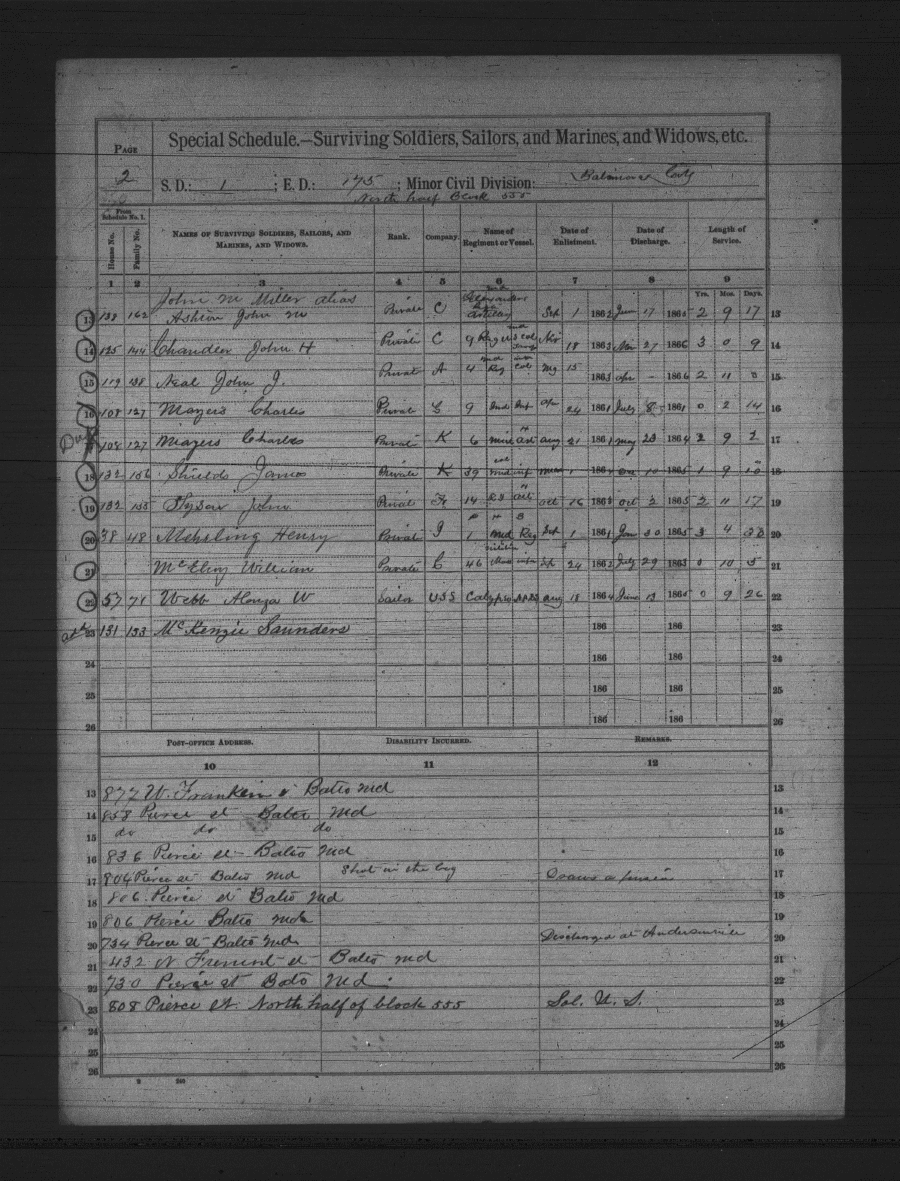 Special Schedule.—Surviving Soldiers, Sailors, and Marines, and Widows, etc.
PAGE
2
S. D.: 1 ; E. D.: 175 ; Minor Civil Division: Baltimore City
North half Block 555
From Schedule No. 1.
House No. Family No. NAMES OF SURVIVING SOLDIERS, SAILORS, AND MARINES, AND WIDOWS. Rank. Company. Name of Regiment or Vessel. Date of Enlistment. Date of Discharge. Length of Service.
1 2 3 4 5 6 7 8 9
Yrs. Mos. Days.
John M Miller alias
13 138 162 Ashton John M Private C Artillery Sep 1 1862 June 17 1865 2 9 17 13
14 125 144 Chandler John H Private C 9 Reg U S Col 18 1863 Nov 27 1866 3 0 9 14
15 119 138 Neal John J. Private A 4 Reg Col 15 1863 Apr - 1866 2 11 0 15
16 108 127 Mayers Charles Private 9 Ind Inf Apr 24 1861 July 8 1861 0 2 14 16
17 108 127 Mayers Charles Private K 6 Art Aug 21 1861 May 23 1864 2 9 2 17
18 132 156 Shields James Private K 39 inf 10 1865 1 9 10 18
19 132 155 John Private 14 Oct 16 1863 Oct 2 1865 2 11 17 19
20 38 48 Mehsling Henry Private I 1 Md Reg Sep 1 1861 Jan 30 1865 3 4 20
21 McElroy William Private 46 Mass Sep 24 1862 July 29 1863 0 10 5 21
22 57 71 Webb Alonza W Sailor USS Calypso Aug 18 1864 June 13 1865 0 9 26 22
23 131 153 McKenzie Saunders 186 186 23
24 186 186 24
25 186 186 25
26 186 186 26
POST-OFFICE ADDRESS. DISABILITY INCURRED. REMARKS.
10 11 12
13 877 W. Franklin st Balto Md 13
14 858 Pierce st Balto Md 14
15 do do do 15
16 836 Pierce st Balto Md 16
17 804 Pierce st Balto Md Shot in the leg Draws a pension 17
18 806 Pierce st Balto Md 18
19 806 Pierce Balto Md 19
20 734 Pierce st Balto Md Discharged at Andersonville 20
21 432 N Fremont st Balto Md 21
22 730 Pierce st Balto Md. 22
23 808 Pierce St. North half of block 555 Sol. U. S. 23
24 24
25 25
26 26